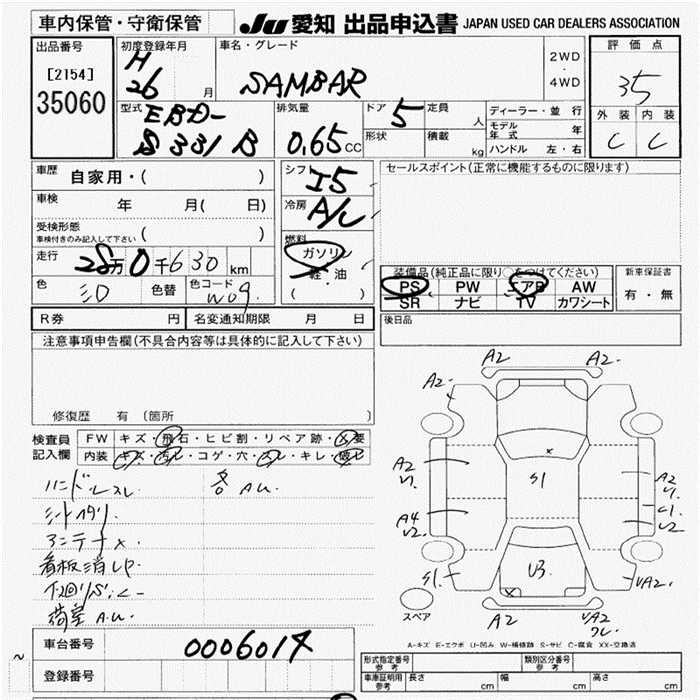 車内保管・守衛保管
JU 愛知 出品申込書 JAPAN USED CAR DEALERS ASSOCIATION
出品番号
[2154]
35060
初度登録年月
H
26 月
車名・グレード
SAMBAR
2WD
・
4WD
評価点
35
外装 内装
C C
型式 EBD-
S331B
排気量
0.65 CC
ドア 5
形状
定員 人
積載 kg
ディーラー・並行
モデル年式 年
ハンドル 左・右
車歴 自家用・( )
車検 年 月( 日)
受検形態
車検付きのみ記入して下さい ( )
走行 28万0千630km
色 色替 色コード
W09
シフト I5
冷房 A/C
燃料
ガソリン
軽・油
( )
セールスポイント(正常に機能するものに限ります)
装備品(純正品に限り○をつけてください)
PS PW エアB AW
SR ナビ TV カワシート
新車保証書
有・無
後日品
R券 円 名変通知期限 月 日
注意事項申告欄(不具合内容等は具体的に記入して下さい)
修復歴 有 (箇所
検査員
記入欄
FW キズ・飛石・ヒビ割・リペア跡・X要
内装 キズ・汚レ・コゲ・穴・スレ・キレ・破レ
ハンドルスレ 各AU.
シートヘタリ.
アンテナ×
看板消しP
荷室A.U.
A2 A2.
A2-
A2
U1.
A4
U2.
S1.
S1
U3
A2
U1
C1
U2
UA2.
A2
UA2
スペア
A-キズ E-エクボ U-凹み W-補修跡 S-サビ C-腐食 XX-交換済
車台番号 0006017
登録番号
形式指定番号
参考
類別区分番号
参考
車庫証明用
参考
長さ cm 幅 cm 高さ cm